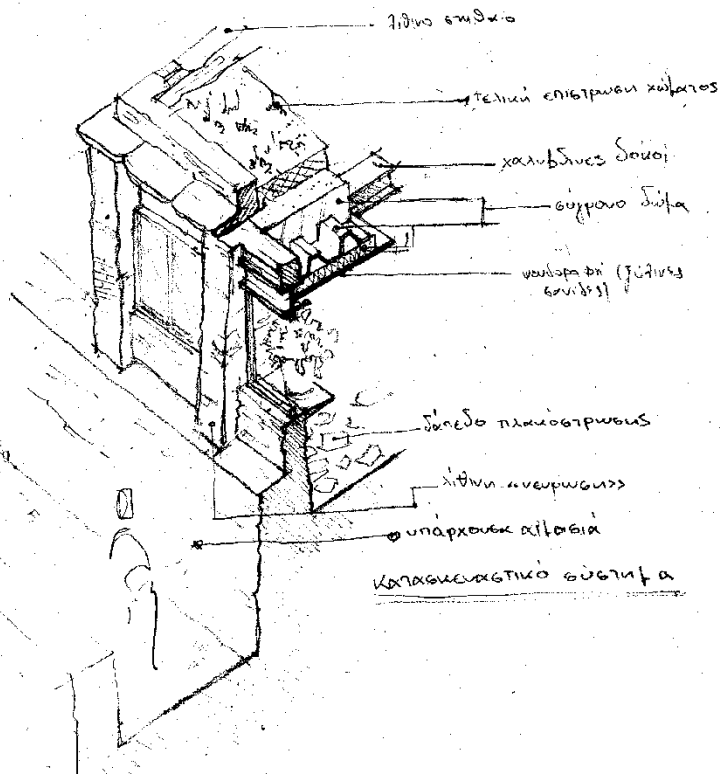 λίθινο στηθαίο
τελική επίστρωση χώματος
χαλύβδινες δοκοί
σύγρονο δώμα
ψευδοροφή (ξύλινες
σανίδες)
δάπεδο πλακόστρωσης
λίθινη «νευρωση»
υπάρχουσα αιμασιά
κατασκευαστικό σύστημα